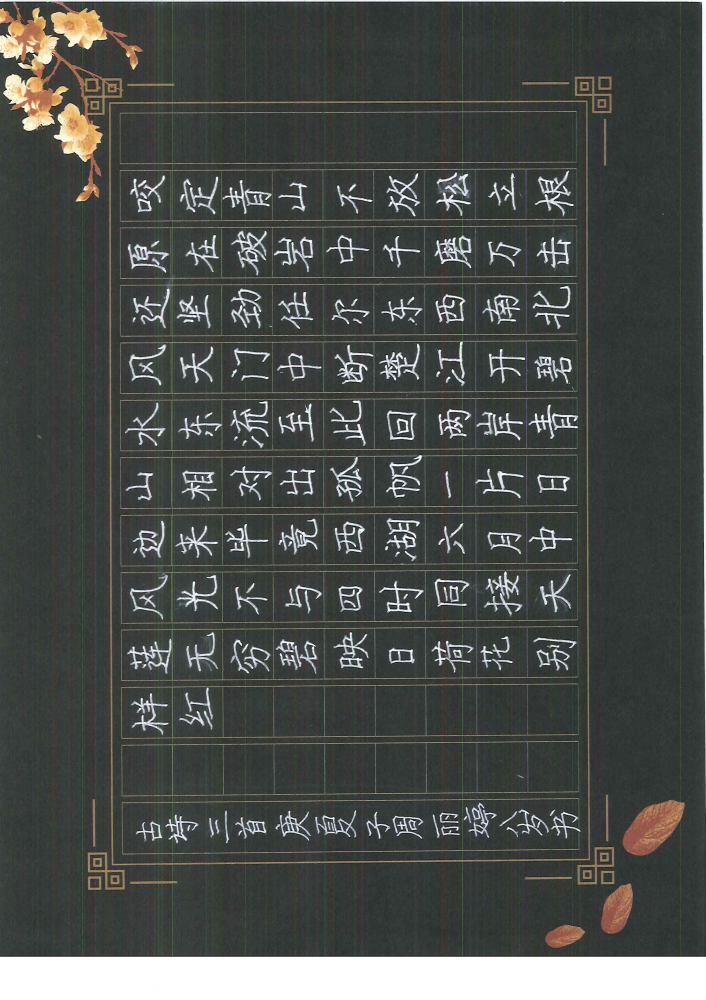 咬定青山不放松立根
原在破岩中千磨万击
还坚劲任尔东西南北
风天门中断楚江开碧
水东流至此回两岸青
山相对出孤帆一片日
边来毕竟西湖六月中
风光不与四时同接天
莲无穷碧映日荷花别
样红
古诗三首庚夏子周丽婷八岁书